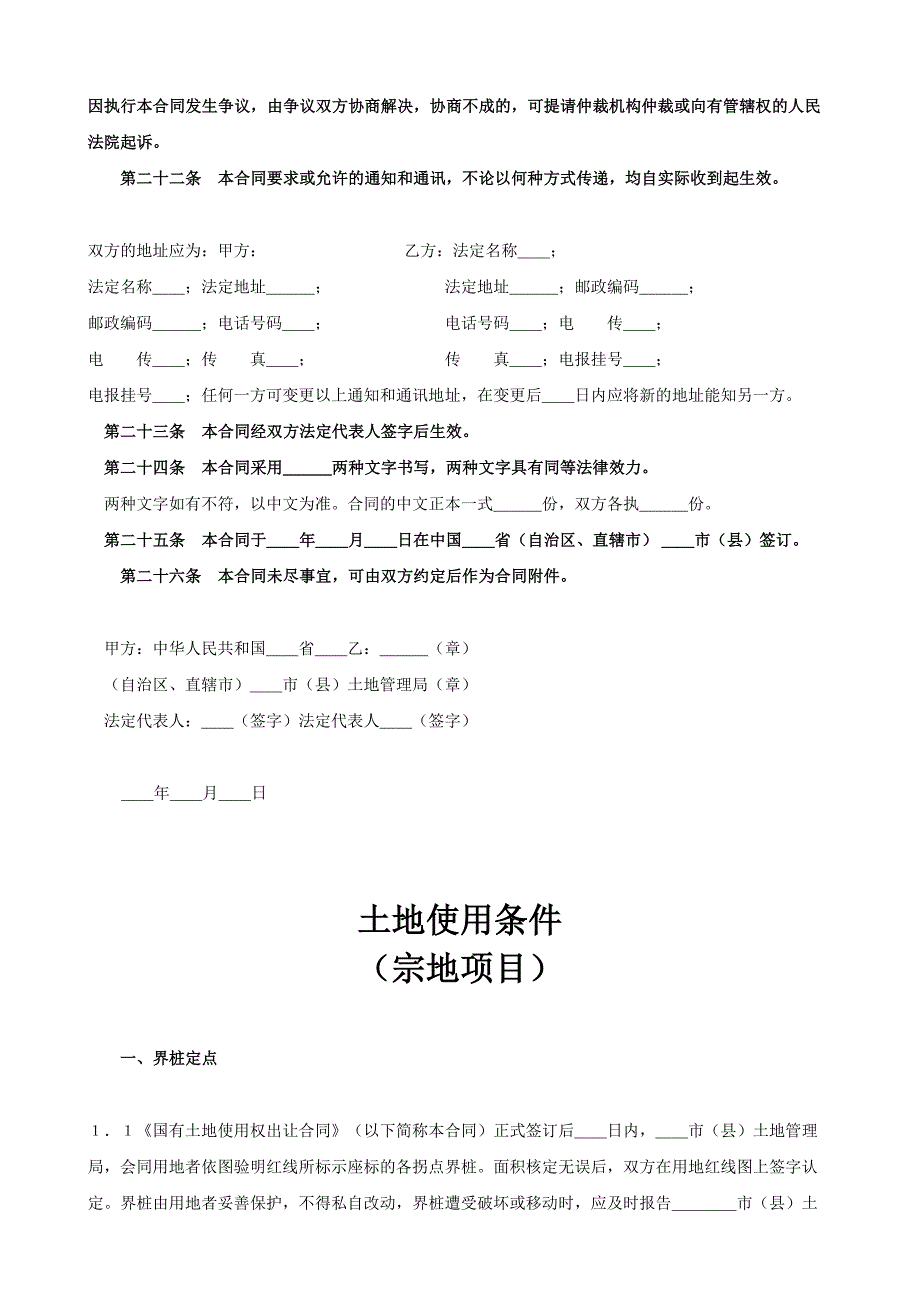 因执行本合同发生争议，由争议双方协商解决，协商不成的，可提请仲裁机构仲裁或向有管辖权的人民
法院起诉。
第二十二条　本合同要求或允许的通知和通讯，不论以何种方式传递，均自实际收到起生效。
双方的地址应为：甲方：　　　　　　　　　乙方：法定名称____；
法定名称____；法定地址______；　　　　　　　　法定地址______；邮政编码______；
邮政编码______；电话号码____；　　　　　　　　电话号码____；电　　传____；
电　　传____；传　　真____；　　　　　　　　　传　　真____；电报挂号____；
电报挂号____；任何一方可变更以上通知和通讯地址，在变更后____日内应将新的地址能知另一方。
第二十三条　本合同经双方法定代表人签字后生效。
第二十四条　本合同采用______两种文字书写，两种文字具有同等法律效力。
两种文字如有不符，以中文为准。合同的中文正本一式______份，双方各执______份。
第二十五条　本合同于____年____月____日在中国____省（自治区、直辖市）____市（县）签订。
第二十六条　本合同未尽事宜，可由双方约定后作为合同附件。
甲方：中华人民共和国____省____乙：______（章）
（自治区、直辖市）____市（县）土地管理局（章）
法定代表人：____（签字）法定代表人____（签字）
____年____月____日
土地使用条件
（宗地项目）
一、界桩定点
１．１《国有土地使用权出让合同》（以下简称本合同）正式签订后____日内，____市（县）土地管理
局，会同用地者依图验明红线所标示座标的各拐点界桩。面积核定无误后，双方在用地红线图上签字认
定。界桩由用地者妥善保护，不得私自改动，界桩遭受破坏或移动时，应及时报告________市（县）土